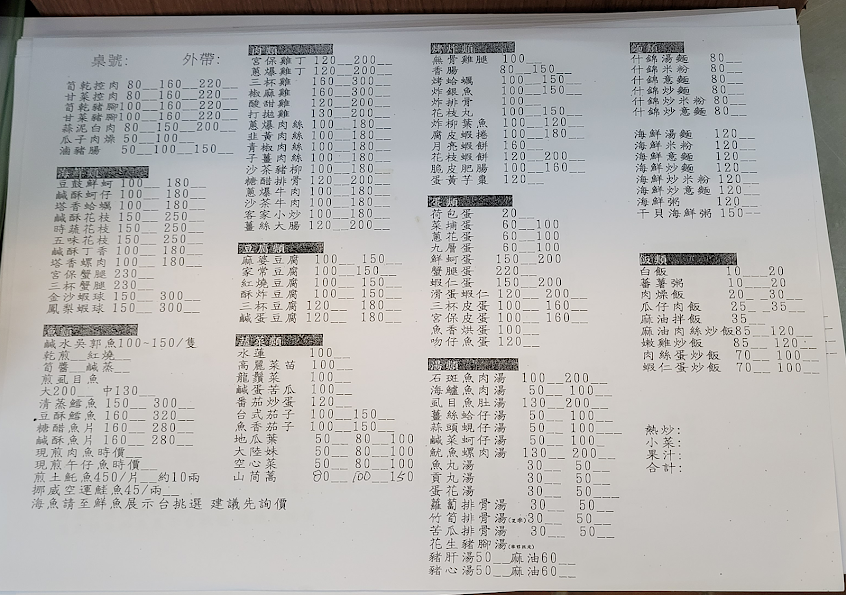 桌號: 外帶:
筍乾控肉 80__160__220__
甘菜控肉 80__160__220__
筍乾豬腳100__160__220__
甘菜豬腳100__160__220__
蒜泥白肉 80__150__200__
瓜子肉燥 50__100__
滷豬腸 50__100__150__
豆鼓鮮蚵 100__ 180__
鹹酥蚵仔 100__ 180__
塔香蛤蠣 100__ 180__
鹹酥花枝 150__ 250__
時蔬花枝 150__ 250__
五味花枝 150__ 250__
鹹酥丁香 100__ 180__
塔香螺肉 100__ 180__
宮保蟹腿 230__
三杯蟹腿 230__
金沙蝦球 150__ 300__
鳳梨蝦球 150__ 300__
鹹水吳郭魚100~150/隻
乾煎__紅燒__
筍醬__鹹蒸__
煎虱目魚
大200__ 中130__
清蒸鱈魚 150__ 300__
豆酥鱈魚 160__ 320__
糖醋魚片 160__ 280__
鹹酥魚片 160__ 280__
現煎肉魚時價__
現煎午仔魚時價__
煎土魠魚450/片__約10兩
挪威空運鮭魚45/兩__
海魚請至鮮魚展示台挑選 建議先詢價
肉類
宮保雞丁 120__200__
蔥爆雞丁 120__200__
三杯雞 160__300__
椒麻雞 160__300__
酸甜雞 120__200__
打拋雞 130__200__
蔥爆肉絲 100__180__
韭黃肉絲 100__180__
青椒肉絲 100__180__
子薑肉絲 100__180__
沙茶豬柳 100__180__
糖醋排骨 120__200__
蔥爆牛肉 100__180__
沙茶牛肉 100__180__
客家小炒 100__180__
薑絲大腸 120__200__
豆腐類
麻婆豆腐 100__ 150__
家常豆腐 100__150__
紅燒豆腐 100__ 150__
酥炸豆腐 100__ 150__
三杯豆腐 120__ 180__
鹹蛋豆腐 120__ 180__
蔬菜類
水蓮 100__
高麗菜苗 100__
龍鬚菜 100__
鹹蛋苦瓜 100__
番茄炒蛋 120__
台式茄子 100__150__
魚香茄子 100__150__
地瓜葉 50__ 80__ 100
大陸妹 50__ 80__ 100
空心菜 50__ 80__ 100
山茼蒿 80__ 100__ 150
烤炸類
無骨雞腿 100__
香腸 80__150__
烤蛤蠣 100__ 150__
炸銀魚 100__ 150__
炸排骨 100__
花枝丸 100__ 150__
炸柳葉魚 100__ 120__
腐皮蝦捲 100__ 180__
月亮蝦餅 160__
花枝蝦餅 120__ 200__
脆皮肥腸 100__ 160__
蛋黃芋棗 120__
蛋類
荷包蛋 20__
菜埔蛋 60__100__
蔥花蛋 60__100__
九層蛋 60__100__
鮮蚵蛋 150__200__
蟹腿蛋 220__
蝦仁蛋 150__ 200__
滑蛋蝦仁 120__ 200__
三杯皮蛋 100__ 160__
宮保皮蛋 100__ 160__
魚香烘蛋 100__
吻仔魚蛋 120__
湯類
石斑魚肉湯 100__200__
海鱸魚肉湯 50__ 100__
虱目魚肚湯 130__ 200__
薑絲蛤仔湯 50__ 100__
蒜頭蜆仔湯 50__ 100__
鹹菜蚵仔湯 50__ 100__
魷魚螺肉湯 130__ 200__
魚丸湯 30__ 50__
貢丸湯 30__ 50__
蛋花湯 30__ 50__
蘿蔔排骨湯 30__ 50__
竹筍排骨湯(夏季)30__ 50__
苦瓜排骨湯 30__ 50__
花生豬腳湯
豬肝湯50__麻油60__
豬心湯50__麻油60__
什錦湯麵 80__
什錦米粉 80__
什錦炒麵 80__
什錦炒米粉 80__
什錦炒意麵 80__
海鮮湯麵 120__
海鮮米粉 120__
海鮮炒麵 120__
海鮮炒米粉 120__
海鮮炒意麵 120__
海鮮粥 120__
干貝海鮮粥 150--
飯類
白飯 10__ 20
蕃薯粥 10__ 20
肉燥飯 20__ 30
瓜仔肉飯 25__ 35__
麻油拌飯 35__
麻油肉絲炒飯85__120__
嫩雞炒飯 85__ 120__
肉絲蛋炒飯 70__ 100__
蝦仁蛋炒飯 70__ 100__
熱炒:
小菜:
果汁:
合計: